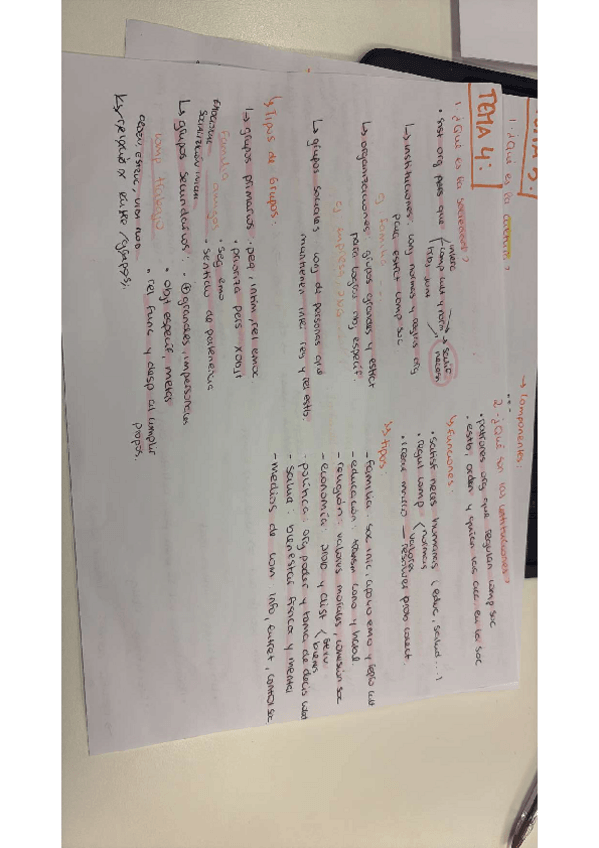 TEMA 3:
1. ¿Qué es la cultura?
TEMA 4:
1. ¿Qué es la sociedad?
• sist org pers que
interac
comp cult y norm
→ satisf
necesi
↳ instituciones: conj normas y reglas org
para estct comp soc
ej familia...
↳ organizaciones: grupos grandes y estct
para lograr obj especif.
↳ grupos sociales: conj de personas que
mantienen inter reg y rel estb.
↳ Tipos de Grupos.
↳ grupos primarios: peq, intim, rel emoc
• prioriza pers x obj
familia, amigos
• seg emo
• sentido de pertenencia
socialización inicial
↳ grupos secundarios: • ⊕ grandes, impersonales
• obj específ, metas
comp trabajo
• rel func y desp al cumplir
propos.
→ componentes:
...
2. ¿Qué son las instituciones?
• patrones org que regulan comp soc
• estb, orden y guian las acc. en la soc
↳ funciones:
• satisf neces humanas (educ, salud...)
• regul comp
valores
normas
• crear marco — resolver prob colect.
↳ tipos
- familia: soc inic, apoyo emo y
- educación: transm cono y habil.
- religión: valores morales, cohesión soc
- economía: prod y dist
serv
bienes
- política: org poder y toma de decis
- salud: bienestar físico y mental
- medios de com: info, entret, control soc